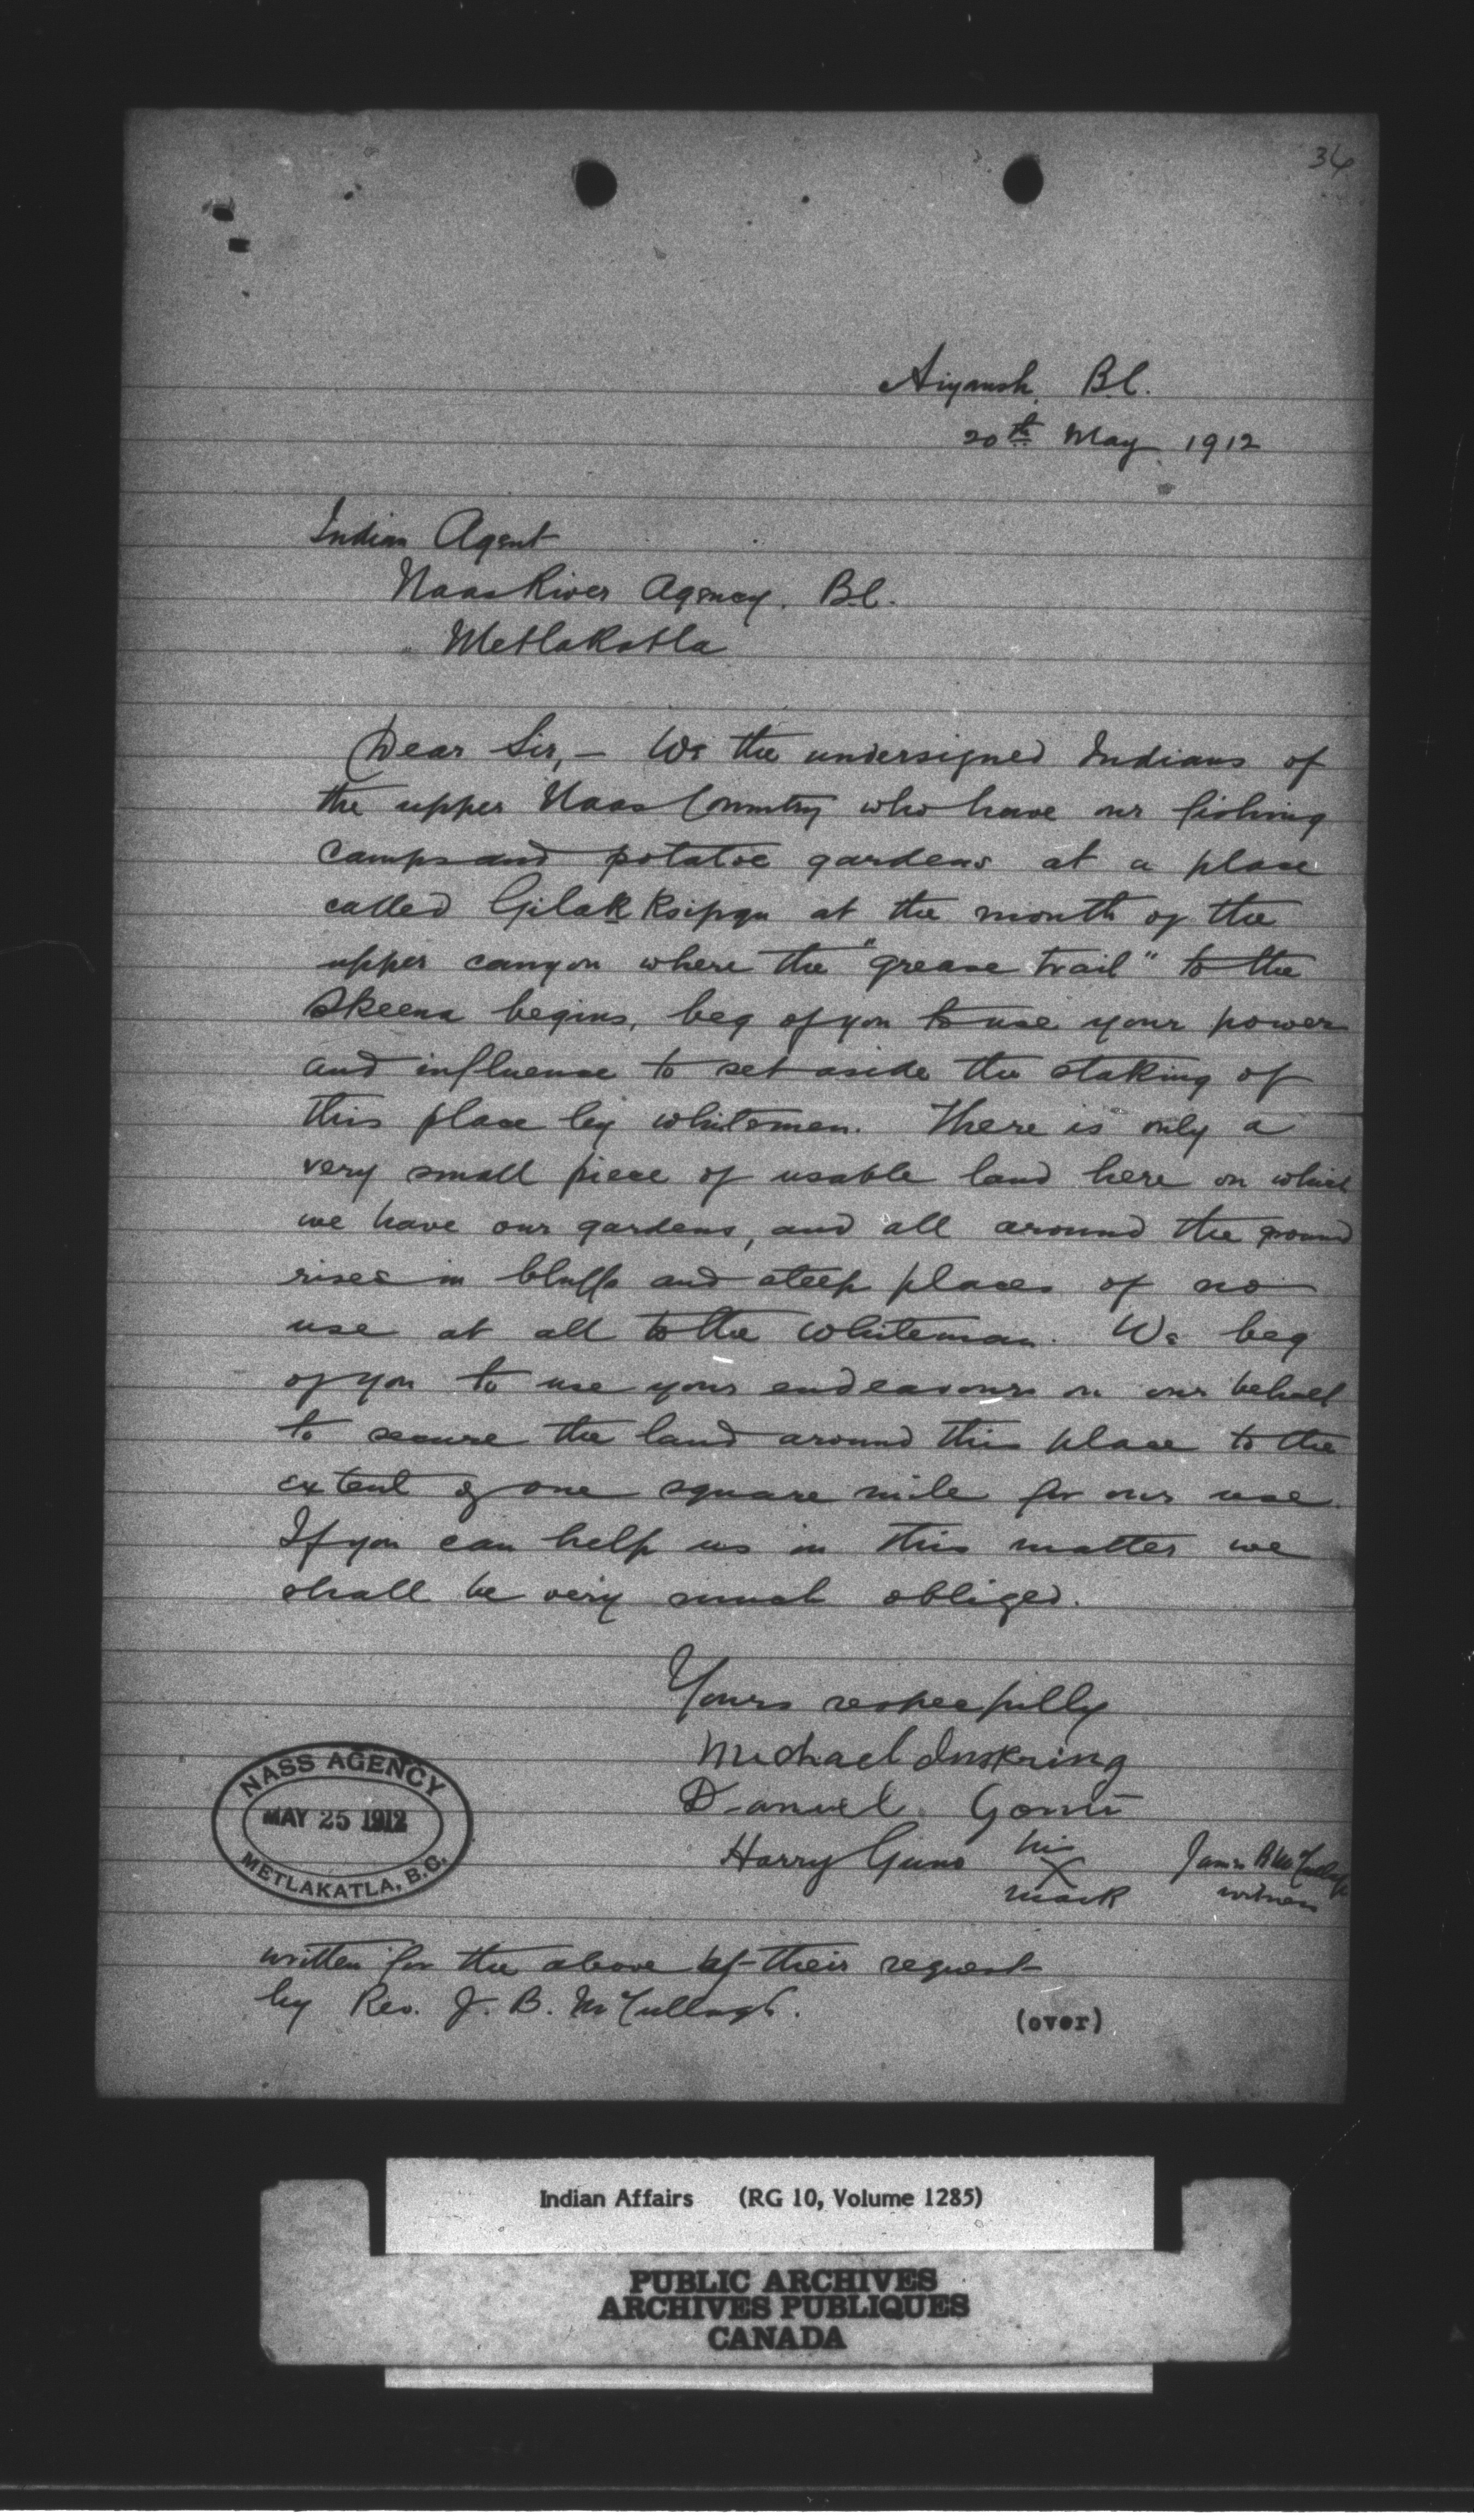 36
Aiyansh, B.C.
20th May 1912
Indian Agent
Naas River Agency. B.C.
Metlakatla
Dear Sir, — We the undersigned Indians of
the upper Naas Country who have our fishing
camps and potatoe gardens at a place
called Gilak Ksipgu at the mouth of the
upper canyon where the "grease trail" to the
Skeena begins, beg of you to use your power
and influence to set aside the staking of
this place by whitemen. There is only a
very small piece of usable land here on which
we have our gardens, and all around the ground
rises in bluffs and steep places of no
use at all to the whiteman. We beg
of you to use your endeavours on our behalf
to secure the land around this place to the
extent of one square mile for our use.
If you can help us in this matter we
shall be very much obliged.
Yours respectfully
Michael Inskring
Daniel
Harry Guno his X mark
James B McCullagh witness
NASS AGENCY
MAY 25 1912
METLAKATLA, B.C.
written for the above at their request
by Rev. J. B. McCullagh.
(over)
Indian Affairs (RG 10, Volume 1285)
PUBLIC ARCHIVES
ARCHIVES PUBLIQUES
CANADA